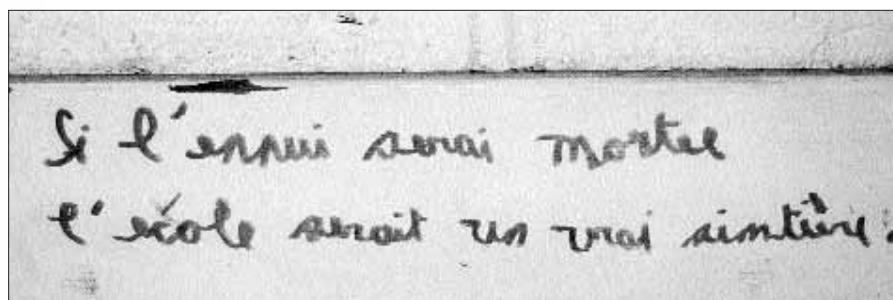 Si l'ennui serai mortel
l'école serait un vrai simtière.